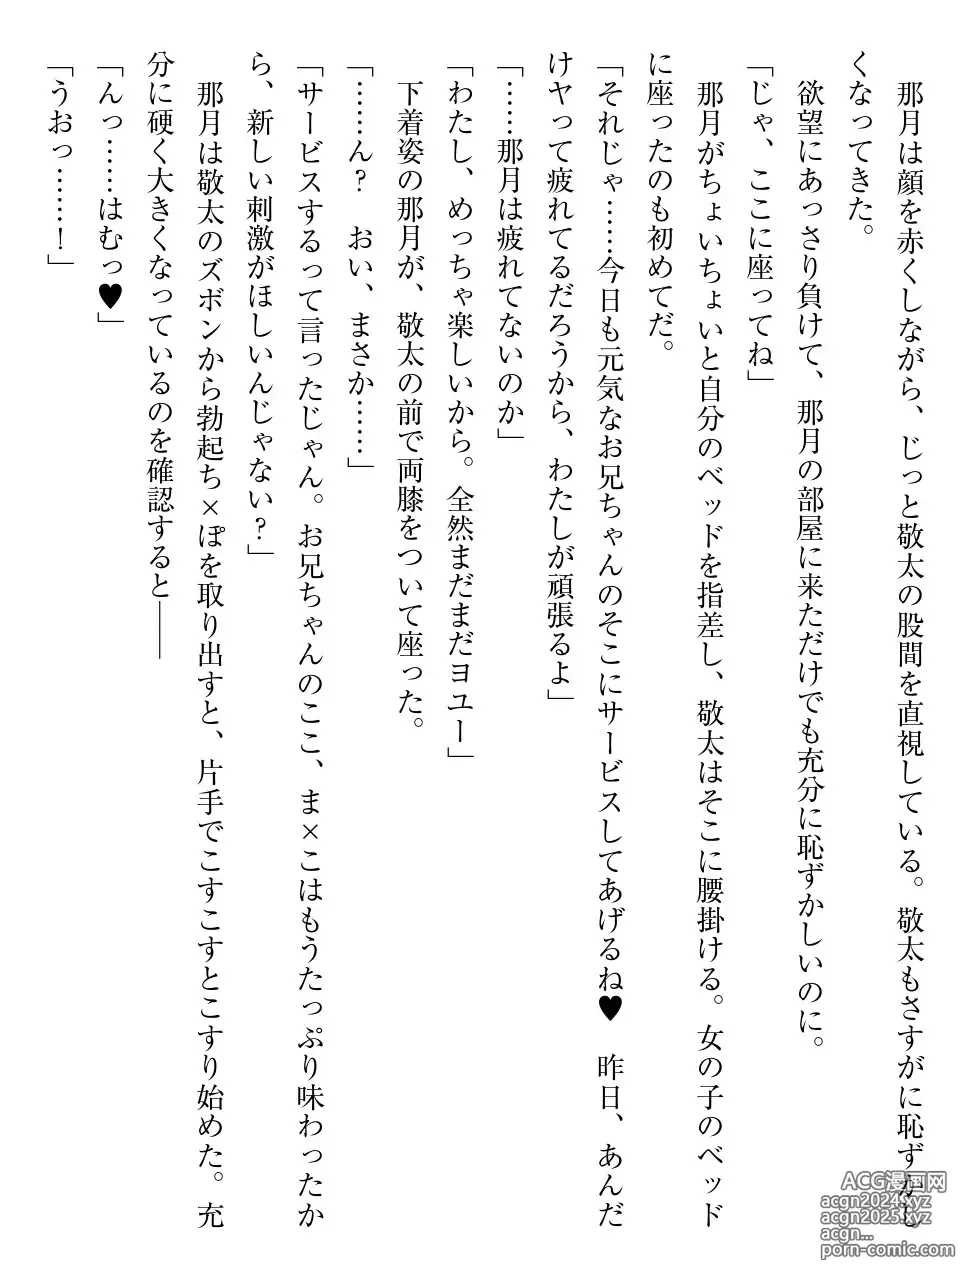 那月は顔を赤くしながら、じっと敬太の股間を直視している。敬太もさすがに恥ずかし
くなってきた。
　欲望にあっさり負けて、那月の部屋に来ただけでも充分に恥ずかしいのに。
「じゃ、ここに座ってね」
　那月がちょいちょいと自分のベッドを指差し、敬太はそこに腰掛ける。女の子のベッド
に座ったのも初めてだ。
「それじゃ……今日も元気なお兄ちゃんのそこにサービスしてあげるね♥　昨日、あんだ
けヤって疲れてるだろうから、わたしが頑張るよ」
「……那月は疲れてないのか」
「わたし、めっちゃ楽しいから。全然まだまだヨユー」
　下着姿の那月が、敬太の前で両膝をついて座った。
「……ん？　おい、まさか……」
「サービスするって言ったじゃん。お兄ちゃんのここ、ま×こはもうたっぷり味わったか
ら、新しい刺激がほしいんじゃない？」
　那月は敬太のズボンから勃起ち×ぽを取り出すと、片手でこすこすとこすり始めた。充
分に硬く大きくなっているのを確認すると――
「んっ……はむっ♥」
「うおっ……！」
ACG漫画网
acgn2024.xyz
acgn2025.xyz
acgn...
porn-comic.com